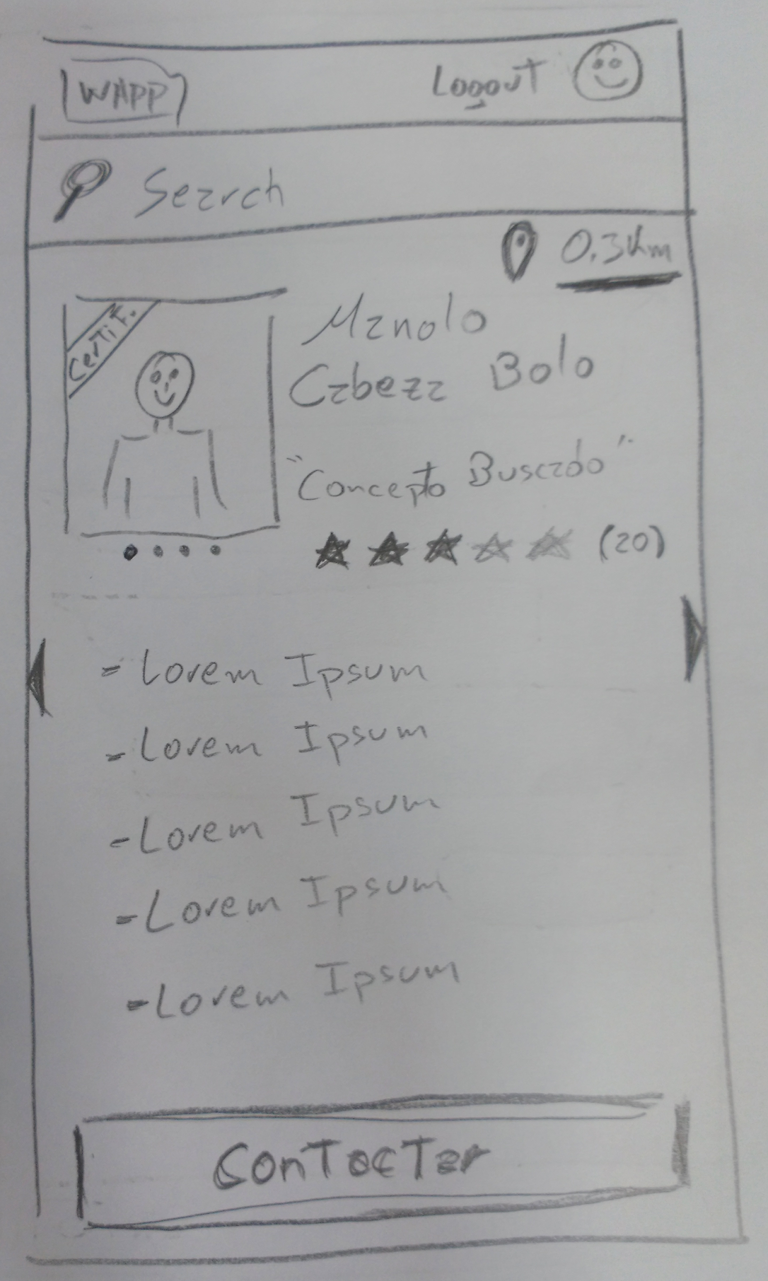 WAPP Logout
Search
0.3Km
Certif.
Manolo
Cabeza Bolo
"Concepto Buscado"
(20)
- Lorem Ipsum
- Lorem Ipsum
- Lorem Ipsum
- Lorem Ipsum
- Lorem Ipsum
Contactar